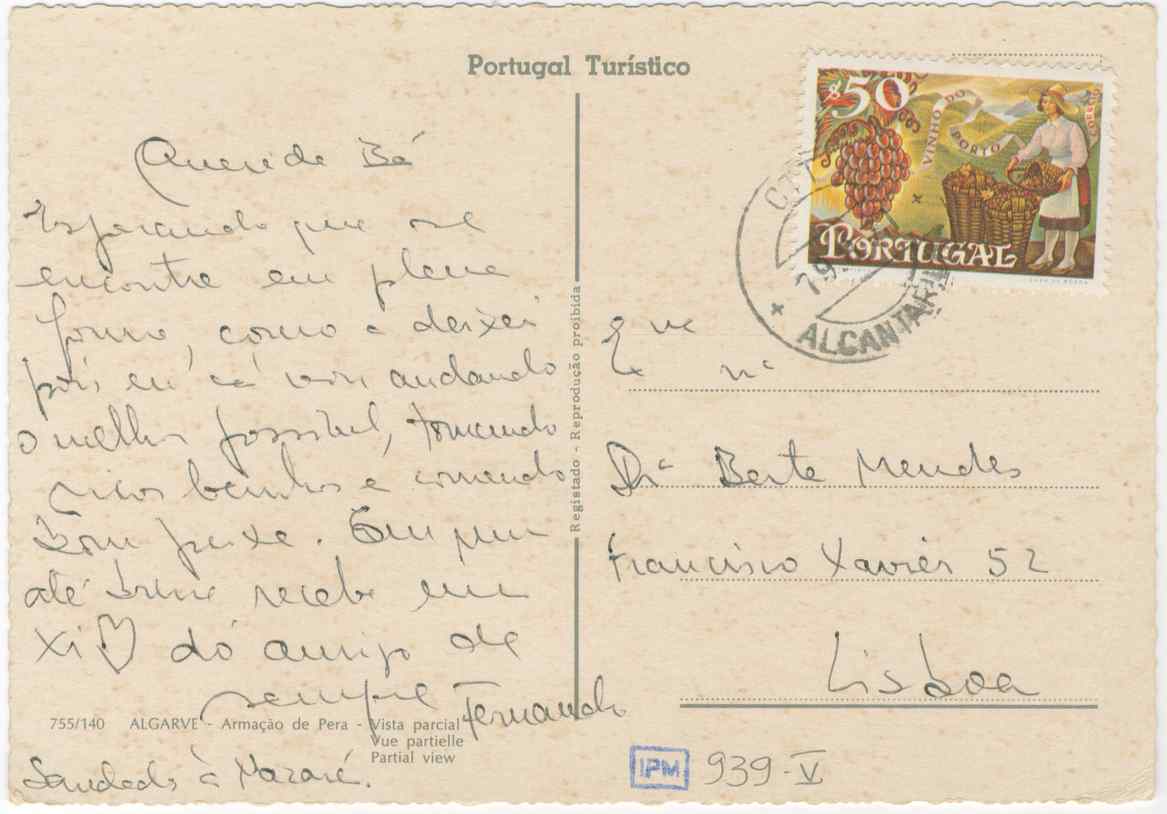 Portugal Turístico
$50
VINHO DO PORTO
CORREIO
PORTUGAL
ALCANTARIL
Querida Bé
Esperando que se
encontre em plena
forma, como a deixei
pois eu cá vou andando
o melhor possível, tomando
ricos banhos e comendo
bom peixe. Sem
até breve recebe um
xi♡ do amigo de
sempre Fernando
755/140 ALGARVE - Armação de Pera - Vista parcial
Vue partielle
Partial view
Saudades à Nazaré.
Registado - Reprodução proibida
Ex ma
Dra Berta Mendes
Francisco Xavier 52
Lisboa
IPM 939-V